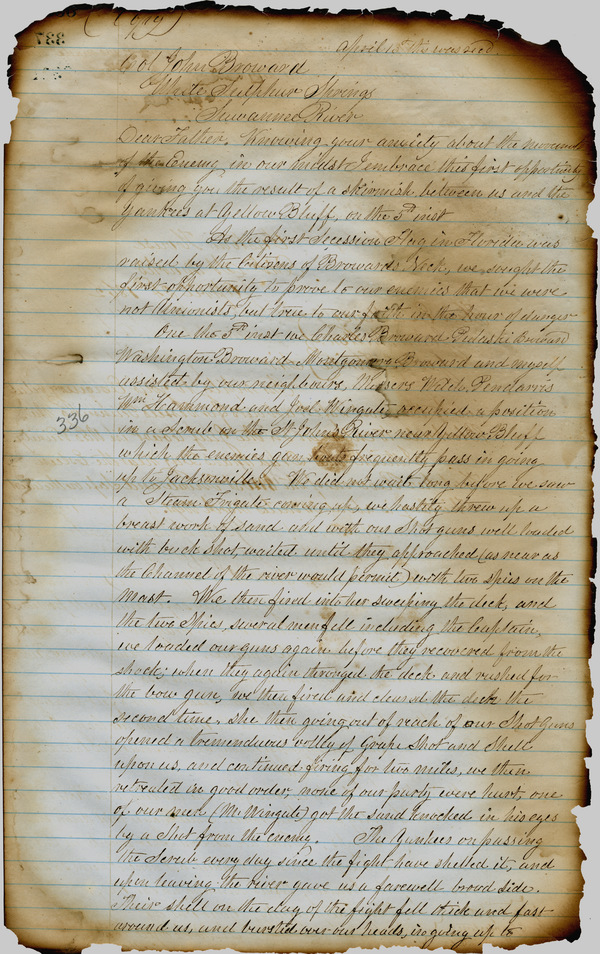 (Copy)
337
April 13th
Col John Broward
White Sulphur Springs
Suwannee River
Dear Father. Knowing your anxiety about the movements
of the Enemy in our midst I embrace this first opportunity
of giving you the result of a skirmish between us and the
Yankees at Yellow Bluff, on the 5th inst
As the first Secession Flag in Florida was
raised by the Citizens of Browards Neck, we sought the
first opportunity to prove to our enemies that we were
not Unionists, but true to our faith in the hour of danger
One the 5th inst we Charles Broward Pulaski Broward
Washington Broward Montgomery Broward and myself
assisted by our neighbours, Messers Pendarvis
Wm Hammond and Joel Wingate occupied a position
336
in a Scrub on the St Johns River near Yellow Bluff
which the enemies gun boats frequently pass in going
up to Jacksonville. We did not wait long before we saw
a Steam Frigate coming up, we hastily threw up a
breast work of sand and with our Shot guns well loaded
with buck shot, waited until they approached (as near as
the Channel of the river would permit) with two spies on the
mast. We then fired into her sweeping the deck, and
the two Spies, several men fell including the Captain,
we loaded our guns again before they recovered from the
shock, when they again thronged the deck and rushed for
the bow gun, we then fired and cleared the deck the
second time, she then going out of reach of our Shot Guns
opened a tremenduous volley of Grape Shot and Shell
upon us, and continued firing for two miles, we then
retreated in good order, none of our party were hurt, one
of our men (Mr Wingate) got the sand knocked in his eyes
by a Shot from the enemy. The Yankees on passing
the Scrub every day since the fight have shelled it, and
upon leaving the river gave us a farewell broad side.
Their shell on the day of the fight fell thick and fast
around us, and bursted over our heads, in going up to